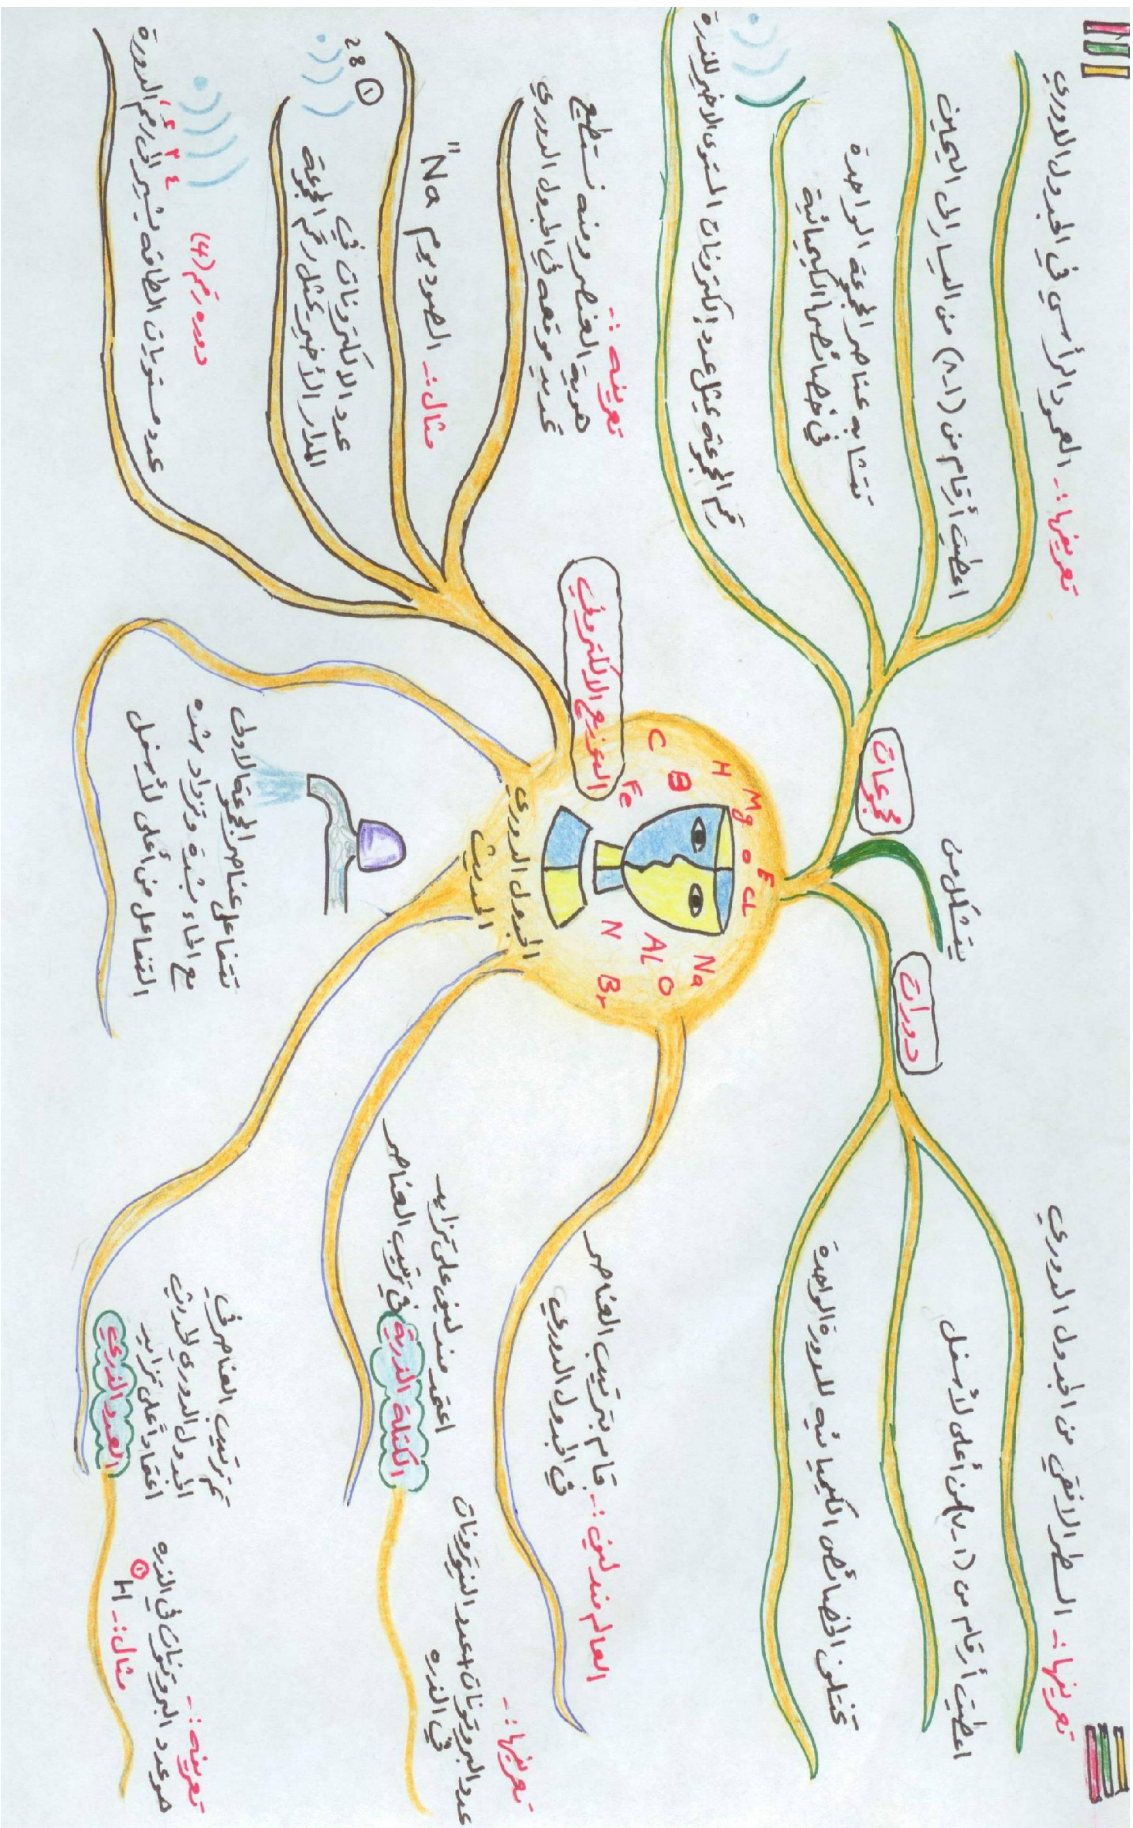 الجدول الدوري
الحديث
C
B
H
Mg
Fe
F
CL
Na
AL
O
N
Br
يتشكل من
مجموعات
تعريفها :- العمود الرأسي في الجدول الدوري
اعطيت أرقام من (١-٨) من اليسار إلى اليمين
تتشابه عناصر المجموعة الواحدة
في خصائصها الكيميائية
رقم المجموعة يمثل عدد إلكترونات المستوى الاخير للذرة
دورات
تعريفها :- السطر الافقي من الجدول الدوري
اعطيت أرقام من (١-٧) من أعلى لأسفل
تختلف الخصائص الكيميائيه للدورة الواحدة
التوزيع الالكتروني
تعريفه :-
هوية العنصر ومنه نستطيع
تحديد موقعه في الجدول الدوري
مثال :- الصوديوم Na 11
2 8 ①
عدد الالكترونات في
المدار الأخير يمثل رقم المجموعة
عدد مستويات الطاقه يشير الى رقم الدورة
دوره رقم (4)
تتفاعل عناصر المجموعة الاولى
مع الماء بشدة وتزداد شده
التفاعل من أعلى لأسفل
العالم مندليف :- قام بترتيب العناصر
في الجدول الدوري
اعتمد مندليف على تزايد
الكتلة الذرية في ترتيب العناصر
تعريفها :-
عدد البروتونات + عدد النيوترونات
في الذره
تم ترتيب العناصر في
الجدول الدوري الحديث
اعتماداً على تزايد
العدد الذري
تعريفه :-
هو عدد البروتونات في الذره
مثال :- H ①